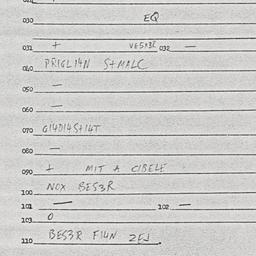 030 EQ
031 + VE5X3R 032 —
040 PRIGLI4N S+MALC
050 —
060 —
070 GI4DI4S+I4T
080 —
090 + MIT A CIBELE
100 NOX BES3R
101 — 102 —
103 0
110 BES3R FI4N ZEJ.